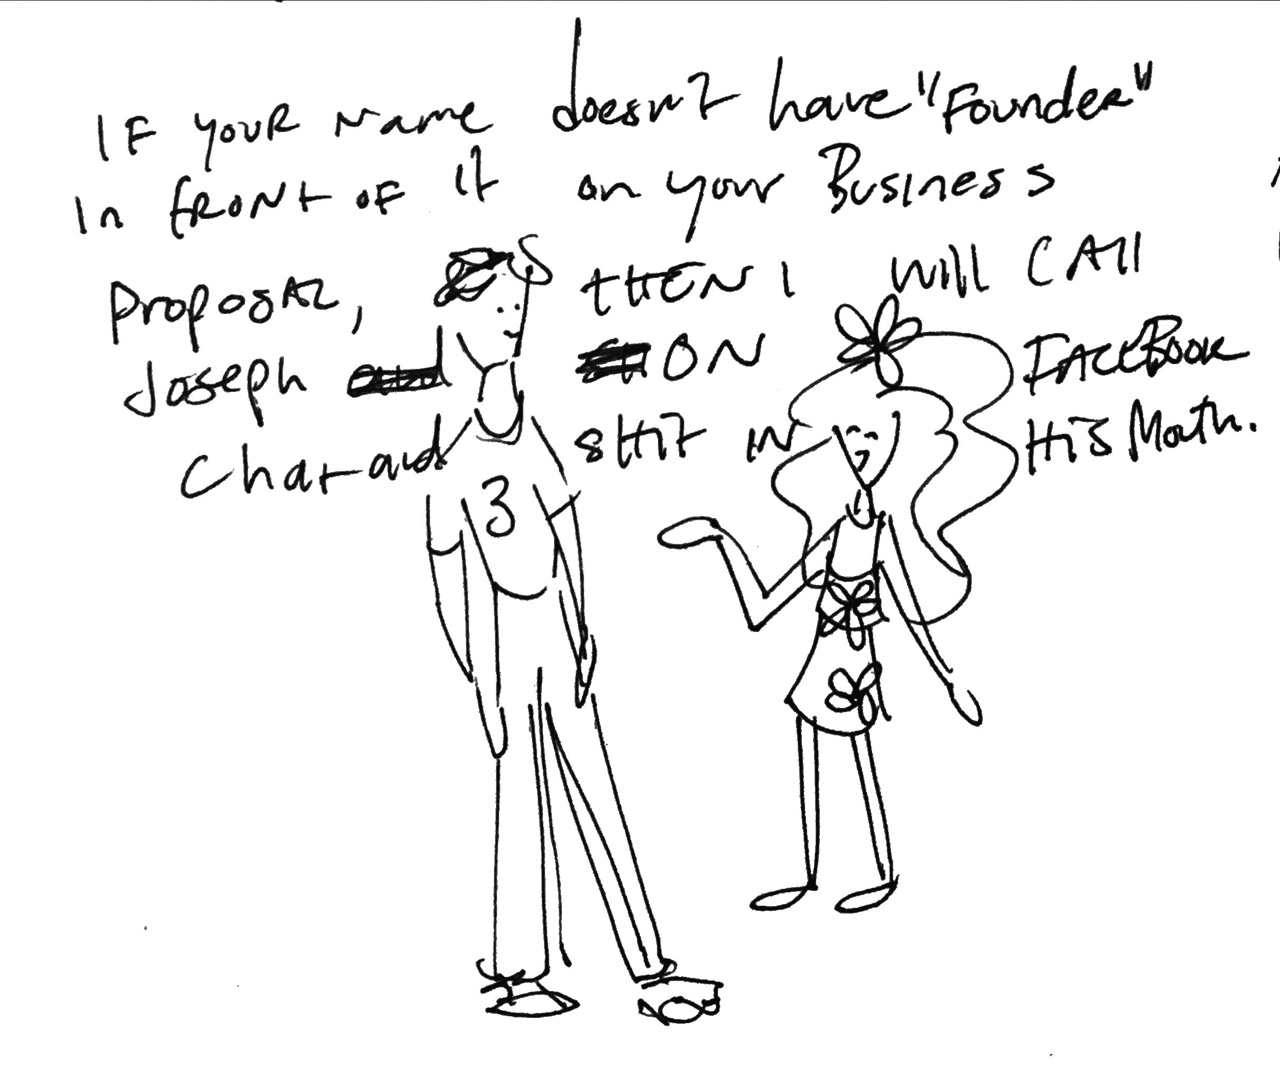 IF YOUR Name doesn't have "Founder"
In FRONT OF it on your Business
PROPOSAL, THEN I will CAll
Joseph ON FACEBOOK
Chat and SHIT IN HIS Mouth.
3